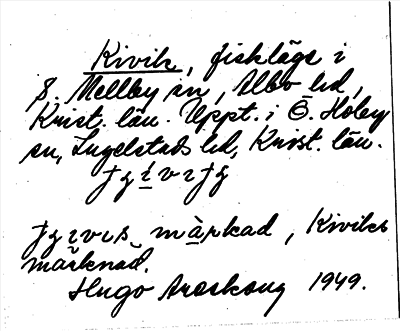 Kivik, fiskläge i
S. Mellby sn, Albo hd,
Krist. län. Uppt. i Ö. Hoby
sn, Ingelstads hd, Krist. län.
märkad, Kiviks
märknad.
Hugo Areskoug 1949.